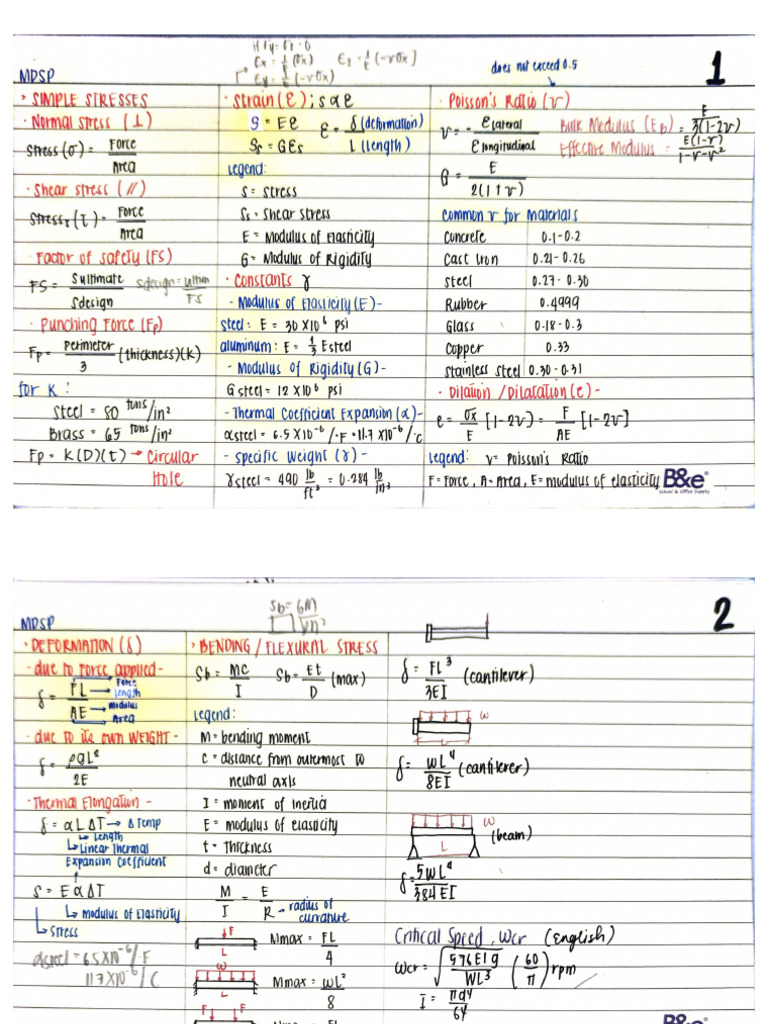 MDSP
1
if σy = σz = 0
εx = 1/E (σx)
εy = 1/E (-vσx)
εz = 1/E [-vσx]
does not exceed 0.5
• SIMPLE STRESSES
• Normal stress (⊥)
Stress(σ) = Force/Area
• Shear stress (//)
Stress_s(τ) = Force/Area
• Factor of safety (FS)
FS = Sultimate/Sdesign
• Punching Force (Fp)
Fp = perimeter/3 (thickness)(K)
for K:
Steel = 80 tons/in²
Brass = 65 tons/in²
Fp = K(D)(t) → Circular
Hole
• Strain (ε); s α ε
S = Eε
ε = δ (deformation)/L (length)
Ss = Gεs
legend:
S = stress
Ss = shear stress
E = Modulus of Elasticity
G = Modulus of Rigidity
• Constants γ
- Modulus of Elasticity (E) -
steel: E = 30 x10⁶ psi
aluminum: E = 1/3 Esteel
- Modulus of Rigidity (G) -
Gsteel = 12 x10⁶ psi
- Thermal Coefficient Expansion (α) -
αsteel = 6.5 x10⁻⁶/·F = 11.7 x10⁻⁶/·C
- specific weight (γ) -
γsteel = 490 lb/ft³ = 0.284 lb/in³
• Poisson's Ratio (v)
v = - εlateral/εlongitudinal
Bulk Modulus (EB) = E/3(1-2v)
Effective Modulus = E(1-v)/1-v-v²
G = E/2(1+v)
common v for materials
concrete 0.1-0.2
Cast Iron 0.21-0.26
steel 0.27-0.30
Rubber 0.4999
Glass 0.18-0.3
Copper 0.33
stainless steel 0.30-0.31
• Dilation / Dilatation (e) -
e = σx/E [1-2v] = F/AE [1-2v]
legend: v = Poisson's Ratio
F = Force, A = Area, E = modulus of elasticity
B&e
School & Office Supply
MDSP
2
Sb = 6M/bh²
• DEFORMATION (δ)
- due to Force applied -
δ = FL/AE
Force
length
modulus
Area
- due to its own WEIGHT -
δ = ρgL²/2E
- Thermal Elongation -
δ = αLΔT → Δ Temp
↳ Length
↳ Linear Thermal
Expansion Coefficient
S = EαΔT
↳ modulus of Elasticity
↳ Stress
αsteel = 6.5 x10⁻⁶/·F
11.7 x10⁻⁶/C
• BENDING / FLEXURAL STRESS
Sb = Mc/I Sb = Et/D (max)
legend:
M = bending moment
C = distance from outermost to
neutral axis
I = moment of inertia
E = modulus of elasticity
t = thickness
d = diameter
M/I = E/R → radius of
curvature
F
L
Mmax = FL/4
ω
L
Mmax = ωL²/8
F F
δ = FL³/3EI (cantilever)
ω
L
δ = WL⁴/8EI (cantilever)
ω
(beam)
L
δ = 5WL⁴/384EI
Critical Speed, Wcr (English)
Wcr = √576EIg/WL³ (60/π) rpm
I = πd⁴/64
B&e